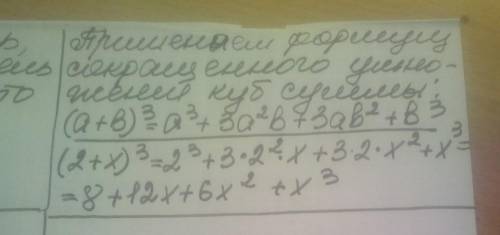 Применяем формулу
сокращенного умно-
жений куб суммы:
(a+b)³=a³+3a²b+3ab²+b³
(2+x)³=2³+3·2²·x+3·2·x²+x³=
=8+12x+6x²+x³
то